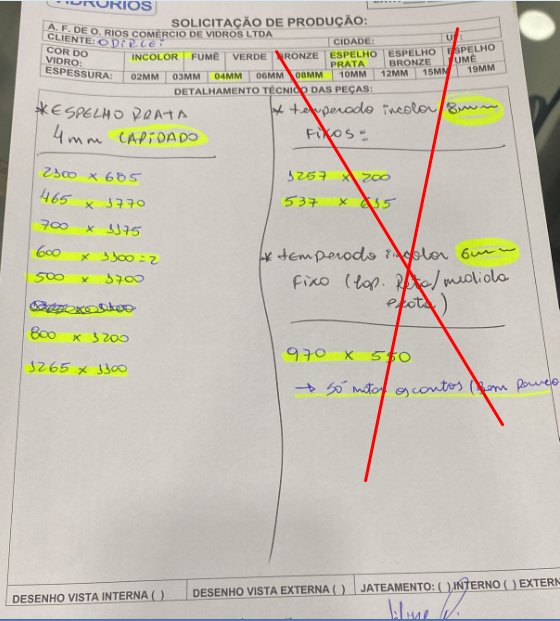 VIDRORIOS
SOLICITAÇÃO DE PRODUÇÃO:
A. F. DE O. RIOS COMÉRCIO DE VIDROS LTDA
CLIENTE: ODIRLEI CIDADE: UF:
COR DO VIDRO: INCOLOR FUMÊ VERDE BRONZE ESPELHO PRATA ESPELHO BRONZE ESPELHO FUMÊ
ESPESSURA: 02MM 03MM 04MM 06MM 08MM 10MM 12MM 15MM 19MM
DETALHAMENTO TÉCNICO DAS PEÇAS:
* ESPELHO PRATA
4mm LAPIDADO
2300 x 685
465 x 1770
700 x 1175
600 x 1300 = 2
500 x 1700
800 x 1200
1265 x 1300
* temperado incolor 8mm
FIXOS:
1257 x 200
537 x 635
* temperado incolor 6mm
Fixo (Lap. Reta/medida exata)
970 x 550
→ só matar os cantos (Bem pouco
DESENHO VISTA INTERNA ( ) DESENHO VISTA EXTERNA ( ) JATEAMENTO: ( ) INTERNO ( ) EXTERN